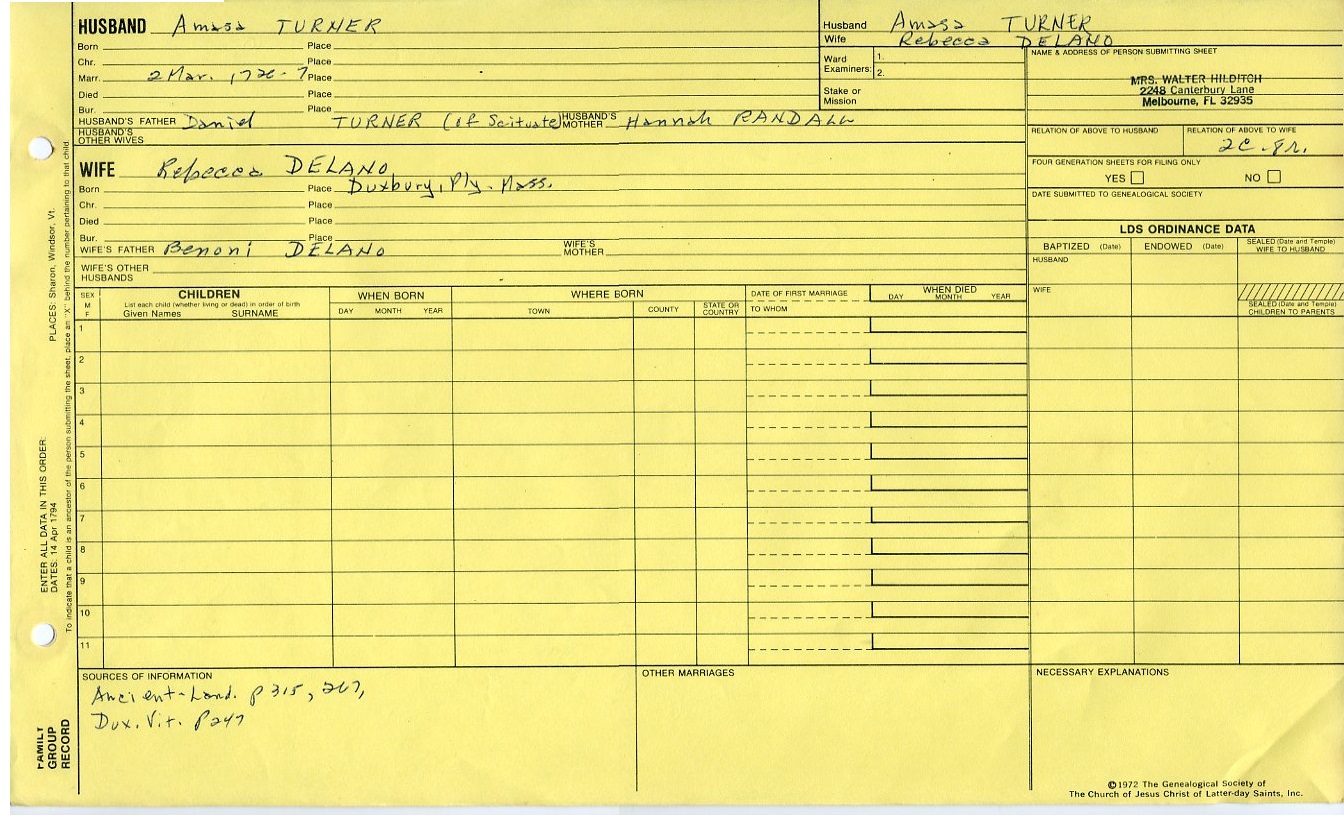 HUSBAND Amasa TURNER
Born Place
Chr. Place
Marr. 2 Mar. 1726-7 Place
Died Place
Bur. Place
HUSBAND'S FATHER Daniel TURNER (of Scituate) HUSBAND'S MOTHER Hannah RANDALL
HUSBAND'S OTHER WIVES
Husband Amasa TURNER
Wife Rebecca DELANO
Ward Examiners: 1.
2.
Stake or Mission
NAME & ADDRESS OF PERSON SUBMITTING SHEET
MRS. WALTER HILDITCH
2248 Canterbury Lane
Melbourne, FL 32935
RELATION OF ABOVE TO HUSBAND RELATION OF ABOVE TO WIFE
2C. gr.
FOUR GENERATION SHEETS FOR FILING ONLY
YES NO
DATE SUBMITTED TO GENEALOGICAL SOCIETY
WIFE Rebecca DELANO
Born Place Duxbury, Ply. Mass.
Chr. Place
Died Place
Bur. Place
WIFE'S FATHER Benoni DELANO WIFE'S MOTHER
WIFE'S OTHER HUSBANDS
LDS ORDINANCE DATA
BAPTIZED (Date) ENDOWED (Date) SEALED (Date and Temple) WIFE TO HUSBAND
HUSBAND
WIFE
SEALED (Date and Temple) CHILDREN TO PARENTS
SEX M F
CHILDREN
List each child (whether living or dead) in order of birth
Given Names SURNAME
WHEN BORN
DAY MONTH YEAR
WHERE BORN
TOWN COUNTY STATE OR COUNTRY
DATE OF FIRST MARRIAGE
TO WHOM
WHEN DIED
DAY MONTH YEAR
1
2
3
4
5
6
7
8
9
10
11
SOURCES OF INFORMATION
Ancient-Land. p 315, 267,
Dux. Vit. p 247
OTHER MARRIAGES
NECESSARY EXPLANATIONS
©1972 The Genealogical Society of
The Church of Jesus Christ of Latter-day Saints, Inc.
PLACES: Sharon, Windsor, Vt.
ENTER ALL DATA IN THIS ORDER:
DATES: 14 Apr 1794
To indicate that a child is an ancestor of the person submitting the sheet, place an "X" behind the number pertaining to that child.
FAMILY
GROUP
RECORD